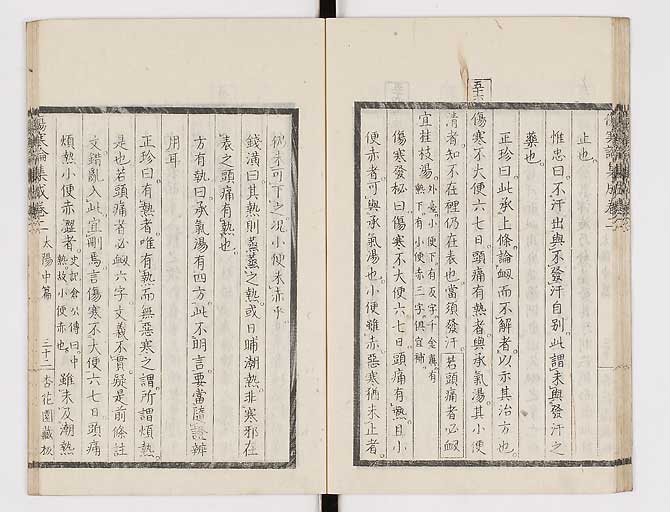 止也。
惟忠曰不汗出與不發汗自別此謂未與發汗之
藥也。
正珍曰此承上條論衂而不解者以示其治方也。
五十六
傷寒不大便六七日頭痛有熱者與承氣湯其小便
清者知不在裡仍在表也當須發汗若頭痛者必衂
宜桂枝湯。外臺小便下有反字千金翼有
熱下有小便赤三字俱宜補。
傷寒發秘曰傷寒不大便六七日頭痛有熱且小
便赤者可與承氣湯也小便雖赤惡寒猶未止者。
傷寒論集成卷二
猶未可下之況小便未赤乎
錢潢曰其熱則蒸蒸之熱或日晡潮熱非寒邪在
表之頭痛有熱也
方有執曰承氣湯有四方此不明言要當隨證辨
用耳
正珍曰有熱者唯有熱而無惡寒之謂所謂煩熱
是也若頭痛者必衂六字文義不貫疑是前條註
文錯亂入此宜刪焉言傷寒不大便六七日頭痛
煩熱小便赤澀者。史記倉公傳曰中
熱故小便赤也。雖未及潮熱
傷寒論集成卷二 太陽中篇 三十二 杏花園藏板